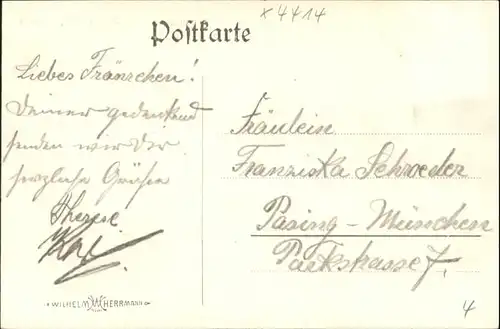 x 4414
Postkarte
Liebes Fränzchen!
Deiner gedenkend
senden wir Dir
herzliche Grüße
Therese
Karl
Fräulein
Franziska Schroeder
Pasing - München
Parkstrasse 7.
WILHELM HERRMANN
4